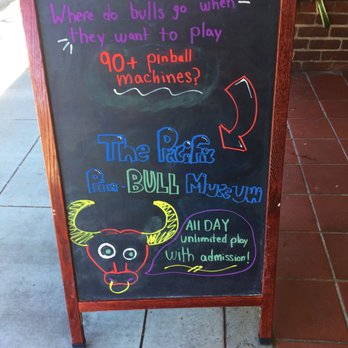 Where do bulls go when
they want to play
90+ pinball
machines?
The Pacific
Pin-BULL Museum
All DAY
unlimited play
with admission!